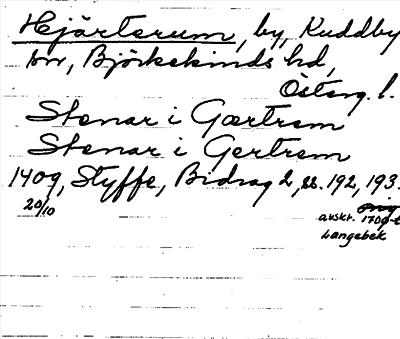 Hjärterum, by, Kuddby
sn, Björkekinds hd,
Österg. l.
Stenar i Gærtrem
Stenar i Gertrem
1409, Styffe, Bidrag 2, ss. 192, 193.
20/10
avskr. 1700-t
Langebek